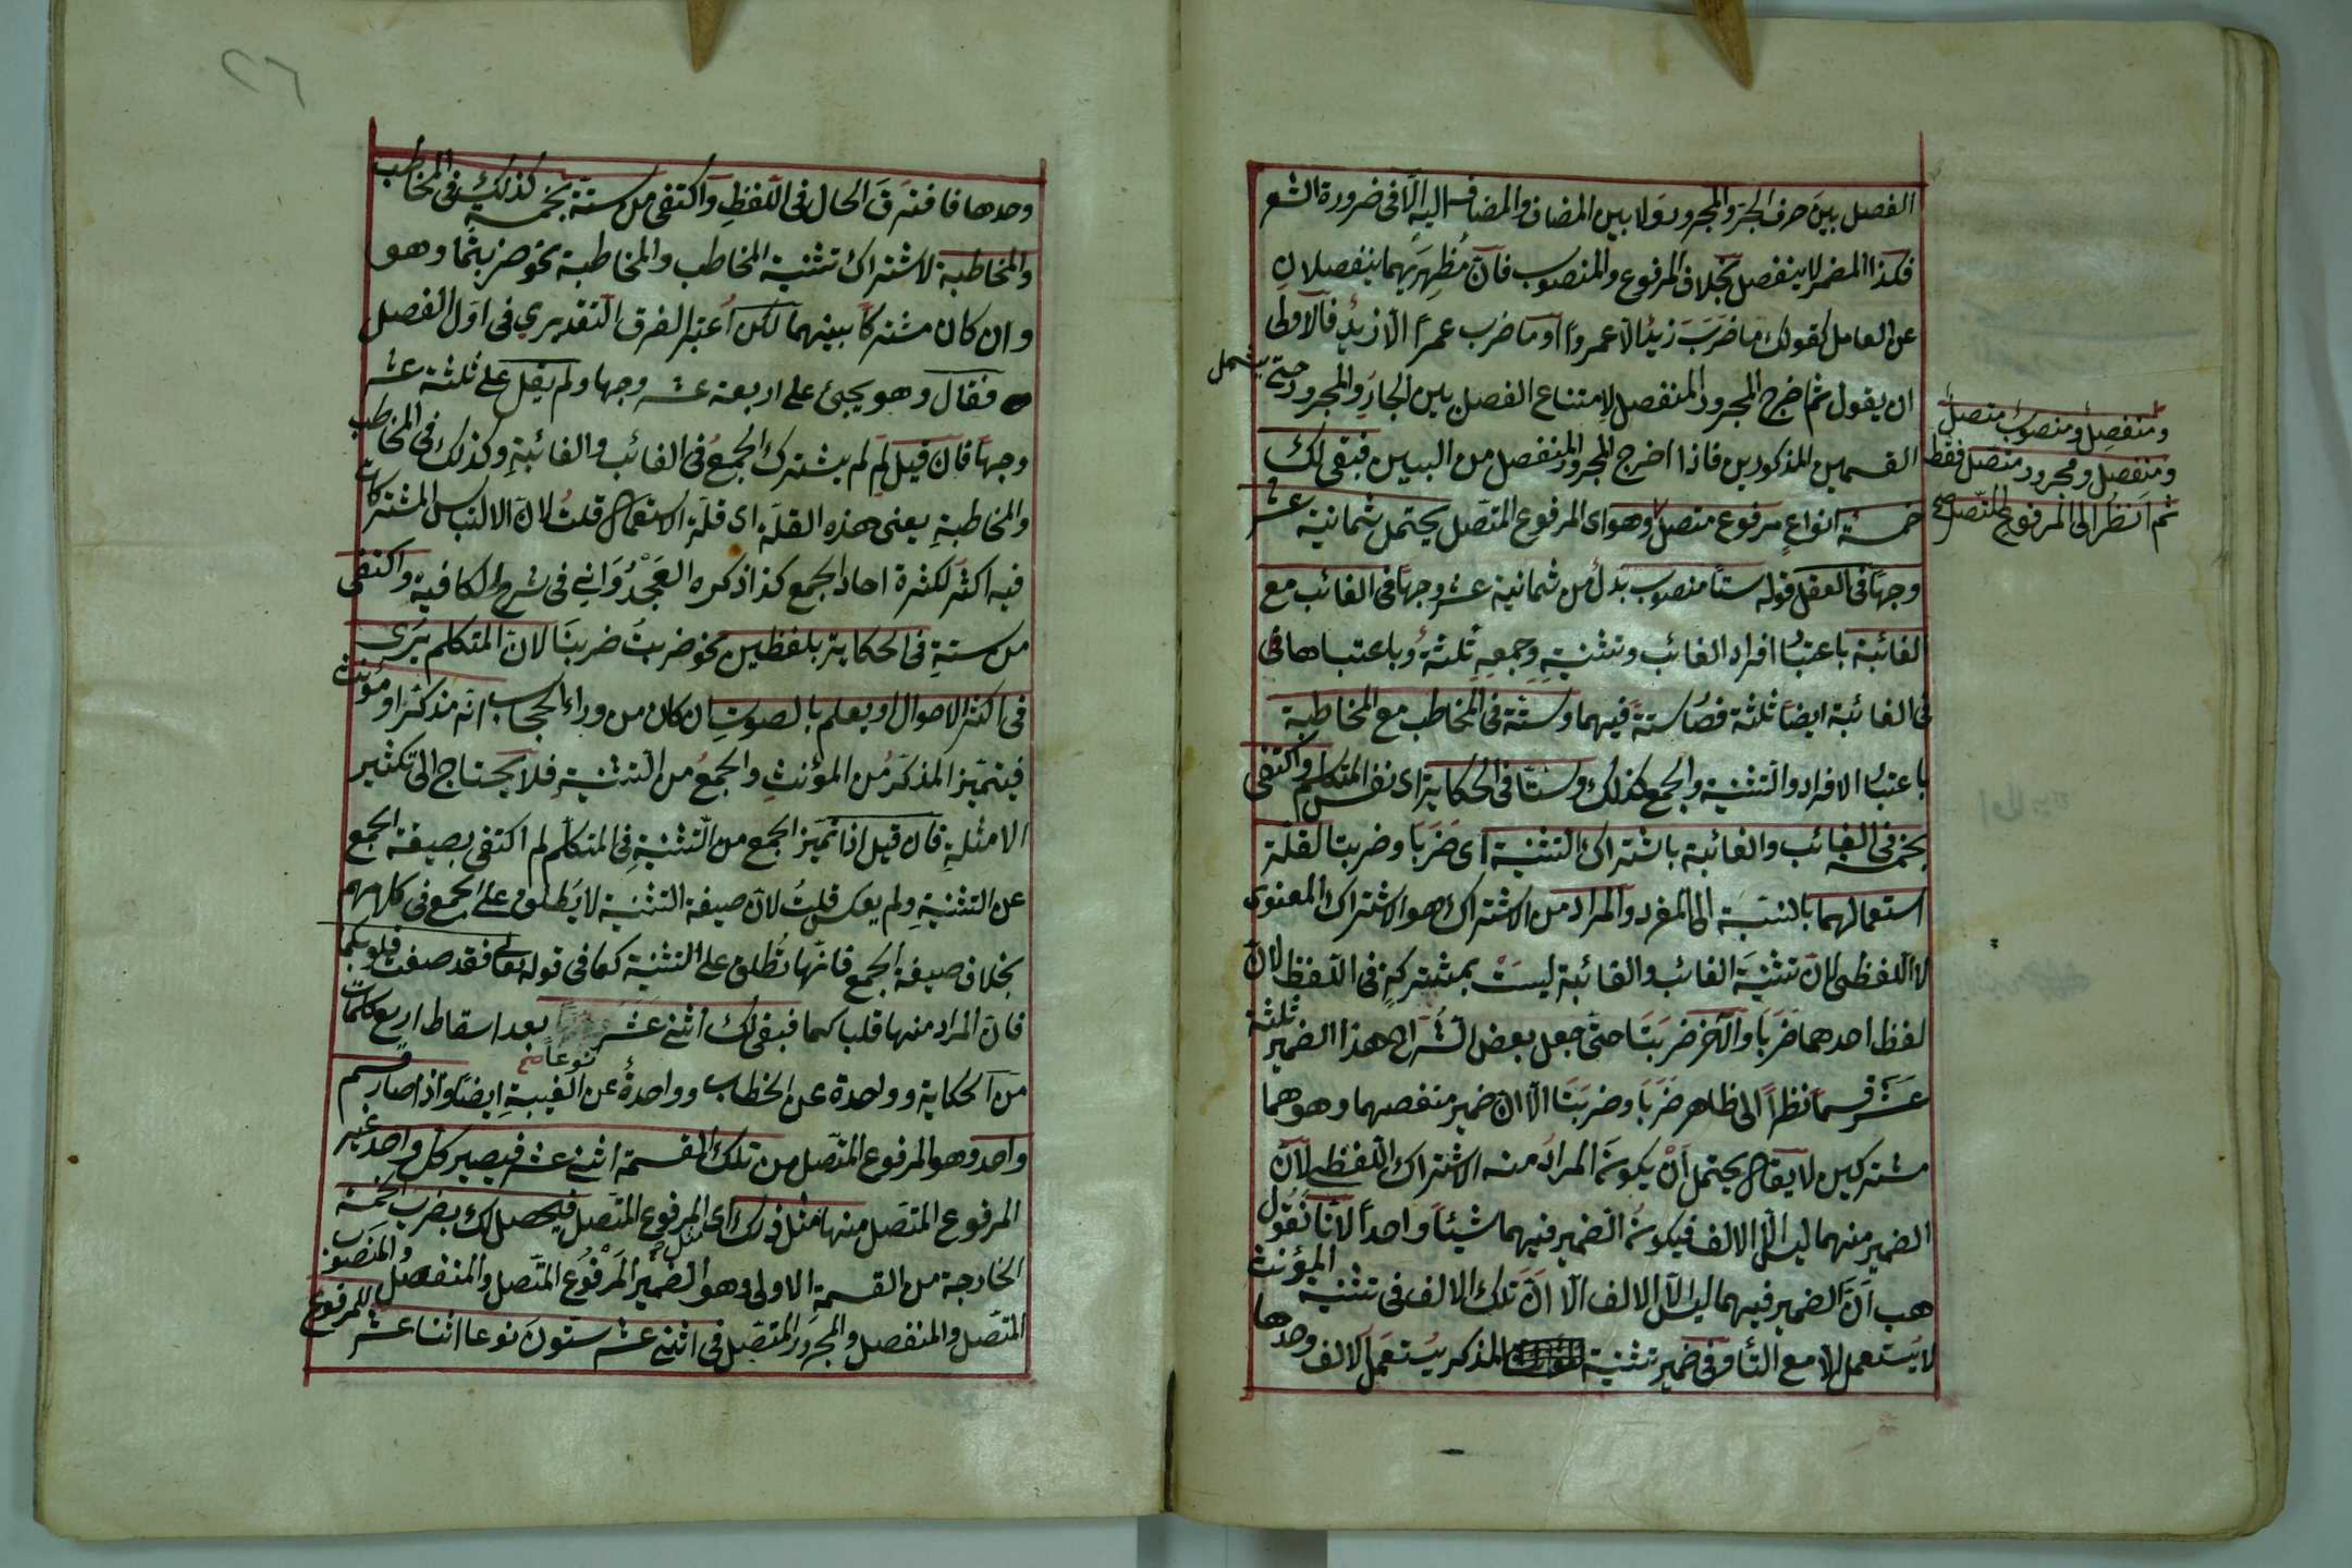 الفصل بين حرف الجر والمجرور ولا بين المضاف والمضاف اليه الّا فى ضرورة الشعر
فكذا المضمر لا ينفصل بخلاف المرفوع والمنصوب فانّ مُظهِرَيهما ينفصلان
عن العامل كقولك ما ضَرَبَ زيدٌ الّا عمروًا او ما ضرب عمرًا الّا زيدٌ فالاولى
ان يقول ثم اخرج المجرور المنفصل لامتناع الفصل بين الجارّ والمجرور حتى يشمل
القسمين المذكورين فاذا اخرج المجرور المنفصل من البين فبقى لك
خمسة انواع مرفوع متصل وهو اى المرفوع المتصل يحتمل ثمانية عشر
ومنفصل ومنصوب متصل
ومنفصل ومجرور متصل فقط
ثم انظر الى المرفوع المتصل صح
وجهًا فى العقل قوله ستا منصوب بدل من ثمانية عشر وجها فى الغائب مع
الغائبة باعتبار افراد الغائب وتثنيتهِ وجمعهِ ثلثةٌ وباعتبارها فى
فى الغائبة ايضا ثلثة فصار ستة فيهما وستة فى المخاطب مع المخاطبة
باعتبار الافراد والتثنية والجمع كذلك وستّا فى الحكاية اى نفس المتكلم واكتفى
بخمسة فى الغائب والغائبة باشتراك التثنية اى ضَرَبَا وضربتا لقلّة
استعمالهما بالنسبة الى المفرد والمراد من الاشتراك هو الاشتراك المعنوى
لا اللفظى لانّ تثنيةَ الغائب والغائبة ليسَتْ بمشتركةٍ فى اللفظ لانّ
لفظ احدهما ضَرَبَا والآخر ضَرَبَتَا حتى جعل بعض الشُرّاح هذا الضمير ثلثة
عَشَرَ قسمًا نظرًا الى ظاهر ضَرَبَا وضربَتَا الّا ان ضمير منفصلهما وهو هما
مشتركين لا يقال يحتمل اَنْ يكونَ المرادُ منه الاشتراك اللفظى لانّ
الضمير منهما ليس الّا الالف فيكونُ الضمير فيهما شيئًا واحدًا لانّا نقول
هب اَنّ الضمير فيهما ليس الّا الالف الّا انّ تلك الالف فى تثنية المؤنث
لا يُستعمل الّا مع التاء وفى ضمير تثنية المذكر يُستعمل الالف وحدها
وحدها فافترَقَ الحال فى اللفظِ واكتفى من ستة بخمسة كذلك فى المخاطب
والمخاطبة لاشتراك تثنية المخاطب والمخاطبة نحو ضربتُما وهو
وان كان مشتركا بينهما لكن اُعتبر الفرق التقديري فى اول الفصل
فقال وهو يجئ على اربعة عشر وجها ولم يقل على ثلثة عشر
وجهًا فان قيل لِمَ لم يشترك الجمعُ فى الغائب والغائبةِ وكذلك فى المخاطب
والمخاطبةِ يعنى هذه القلّة اى قلّة الاستعمال قلتُ لانّ الالتباس المشتركات
فيه اكثر لكثرة احاد الجمع كذا ذكره العَجْدُوَانِي فى شرح الكافية واكتفى
من ستةٍ فى الحكاية بلفظين نحو ضربتُ ضربنَا لانّ المتكلم يُرَى
فى اكثر الاحوال ويعلم بالصوتِ ان كان من وراء الحجاب انه مذكر او مؤنث
فيتميّز المذكّرُ من المؤنثِ والجمعُ من التثنيةِ فلا يحتاج الى تكثير
الامثلةِ فان قيل اذا تميّز الجمع من التثنيةِ فى المتكلّم لم اكتفى بصيغة الجمع
عن التثنيةِ ولم يعكس قلتُ لانّ صيغة التثنية لا يُطلق على الجمع فى كلامهم
بخلاف صيغة الجمع فانّها تُطلق على التثنية كما فى قوله تعالى فقد صغت قلوبكما
فانّ المراد منها قلبا كما فبقى لك اثنى عَشَر بعد اسقاط اربع كلمات
نوعا صح
من الحكاية وواحدة عن الخطاب وواحدةٌ عن الغيبةِ ايضًا واذا صار قسم
واحد وهو المرفوع المتصل من تلك القسمة اثنى عشر فيصير كلّ واحد غير
المرفوع المتصل منها مثل ذلك اى المرفوع المتصل فيحصل لك بضرب الخمسة
الخارجة من القسمةِ الاولى وهو الضمير المرفُوع المتّصل والمنفصل والمنصوب
المتصل والمنفصل والمجرور المتصل فى اثنى عشر ستّونَ نوعا اثنا عشر للمرفوع